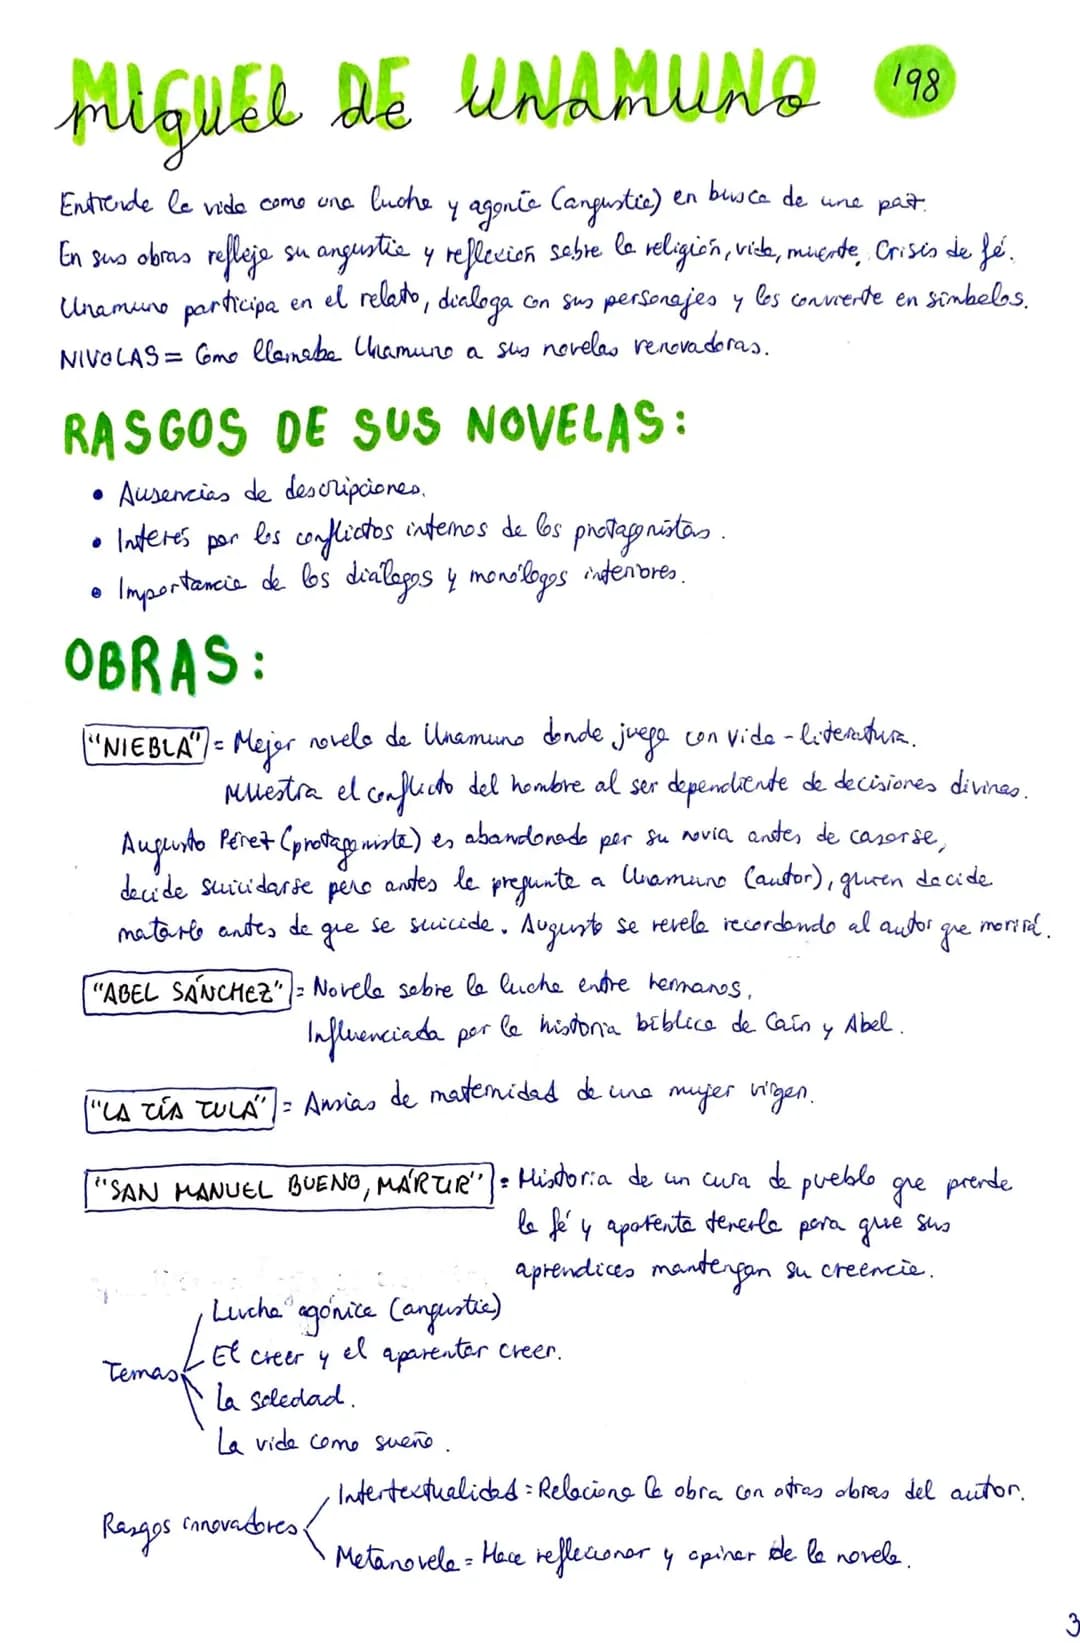 MIGUEL DE UNAMUNO
miguel de unamuno '98
Entiende la vida como una lucha y agonía (angustia) en busca de una paz.
En sus obras refleja su angustia y reflexión sobre la religión, vida, muerte, Crisis de fé.
Unamuno participa en el relato, dialoga con sus personajes y los convierte en símbolos.
NIVOLAS = Como llamaba Unamuno a sus novelas renovadoras.
RASGOS DE SUS NOVELAS:
• Ausencias de descripciones.
• Interés por los conflictos internos de los protagonistas.
• Importancia de los diálogos y monólogos interiores.
OBRAS:
"NIEBLA" = Mejor novela de Unamuno donde juega con vida - literatura.
Muestra el conflicto del hombre al ser dependiente de decisiones divinas.
Augusto Pérez (protagonista) es abandonado por su novia antes de casarse,
decide suicidarse pero antes le pregunta a Unamuno (autor), quien decide
matarlo antes de que se suicide. Augusto se revela recordando al autor que morirá.
"ABEL SÁNCHEZ" = Novela sobre la lucha entre hermanos,
Influenciada por la historia bíblica de Caín y Abel.
"LA TÍA TULA" = Ansias de maternidad de una mujer virgen.
"SAN MANUEL BUENO, MÁRTIR" = Historia de un cura de pueblo que prerde
la fé y aparenta tenerla para que sus
aprendices mantengan su creencia.
Lucha agónica (angustia)
El creer y el aparentar creer.
Temas
La soledad.
La vida como sueño.
Intertextualidad = Relaciona la obra con otras obras del autor.
Rasgos innovadores
Metanovela = Hace reflexionar y opinar de la novela.
3